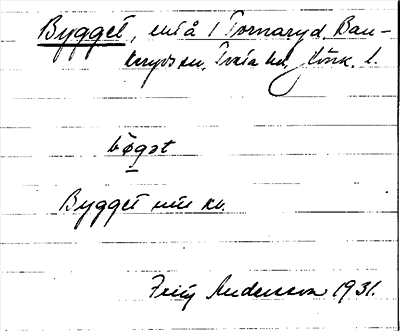 Bygget, utå 1 Tornaryd, Ban-
keryds sn, Tveta hd, Jönk. l.
bøgət
Bygget utå kv.
Andersson 1931.